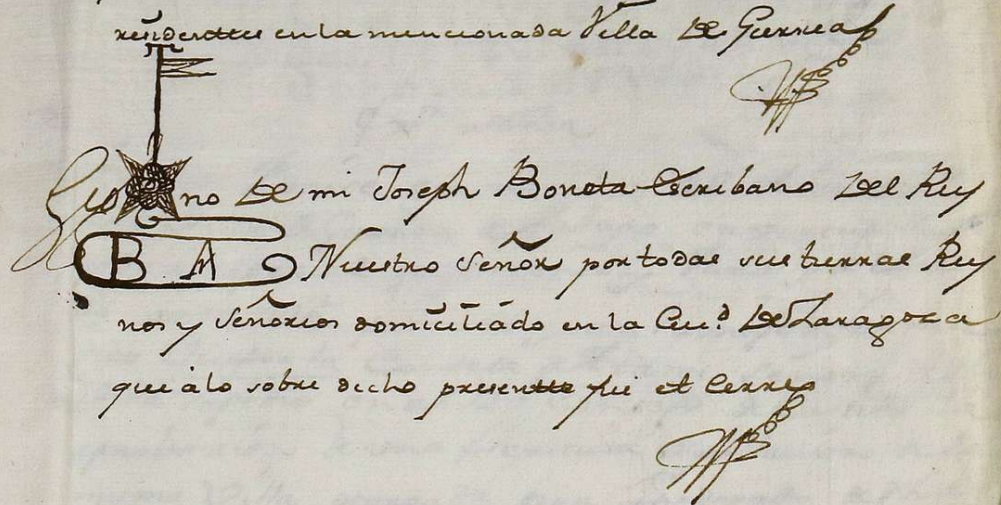 residenttes en la mencionada Villa de Gurrea
Sig no de mi Joseph Boneta Escribano del Rey
B A Nuestro Señor por todas sus tierras Rey
nos y Señorios domiciliado en la Ciu.d de Zaragoza
que à lo sobre dicho presentte fui et Cerre